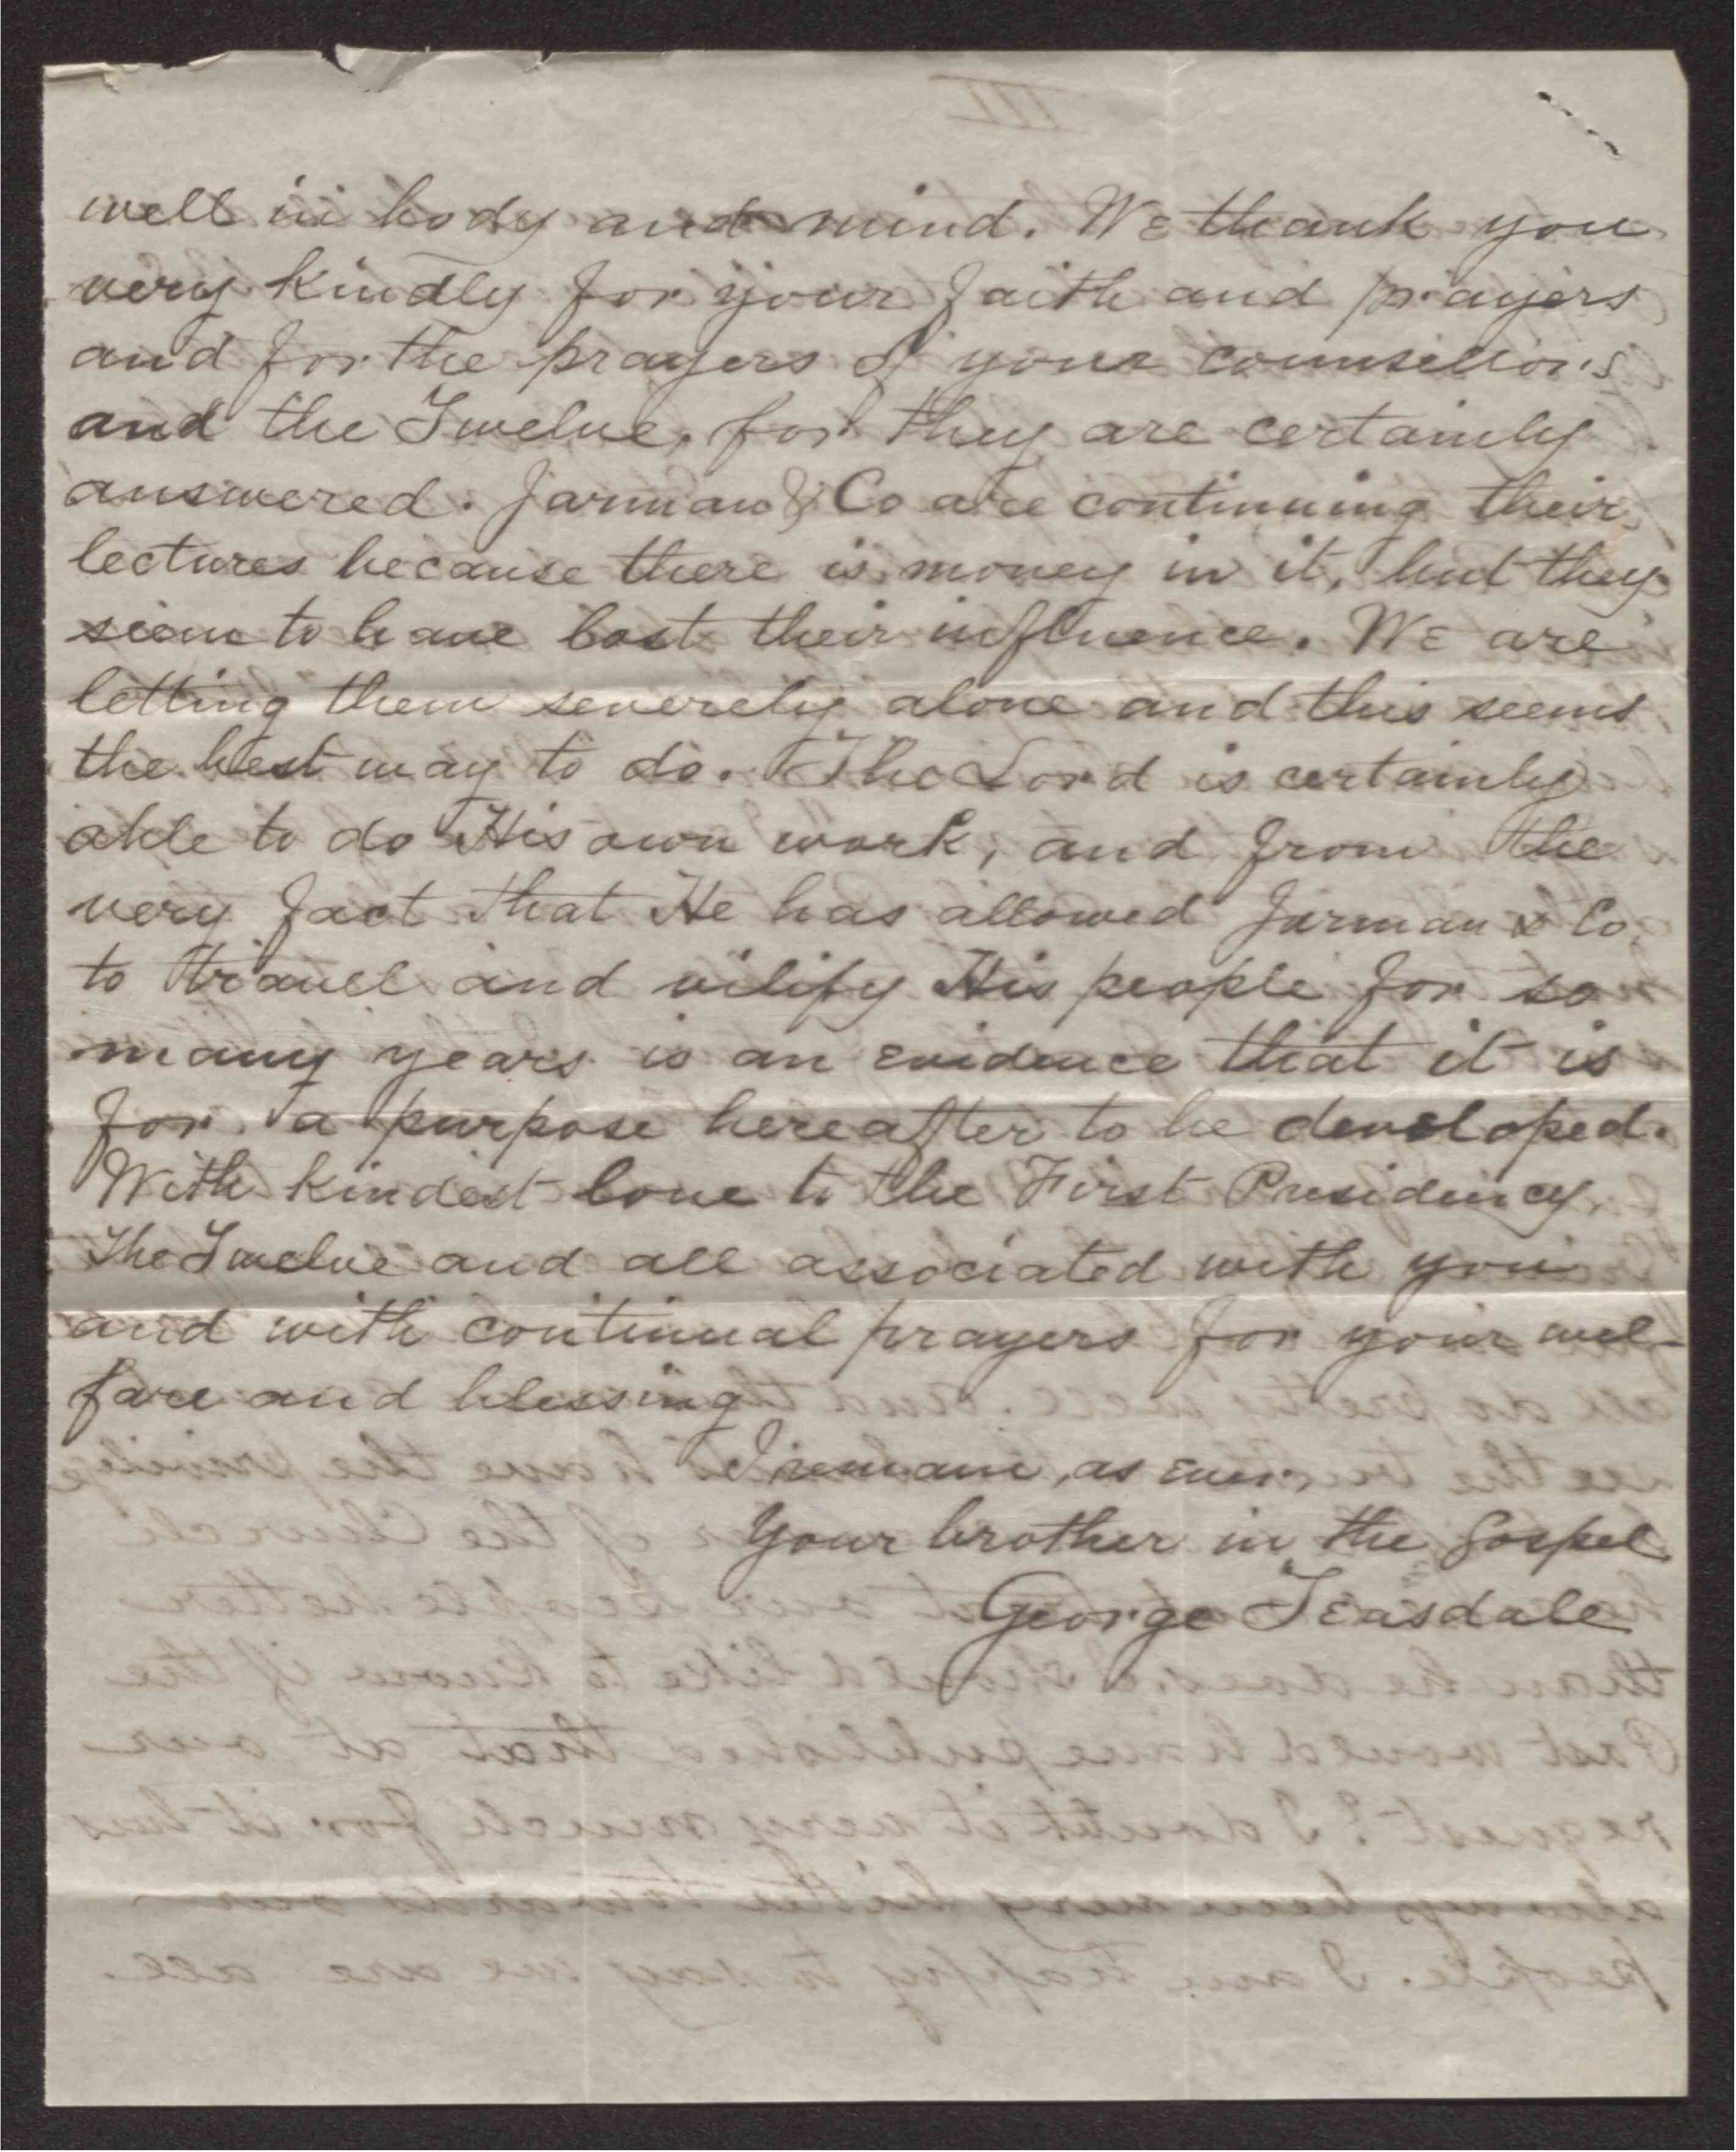 well in body and mind. We thank you
very kindly for your faith and prayers
and for the prayers of your counsellors
and the Twelve, for they are certainly
answered. Jarman & Co are continuing their
lectures because there is money in it, but they
seem to have lost their influence. We are
letting them severely alone and this seems
the best way to do. The Lord is certainly
able to do His own work, and from the
very fact that He has allowed Jarman & Co.
to travel and vilify His people for so
many years is an evidence that it is
for a purpose hereafter to be developed.
With kindest love to the First Presidency
The Twelve and all associated with you
and with continual prayers for your wel-
fare and blessing
I remain, as ever,
Your brother in the Gospel
George Teasdale